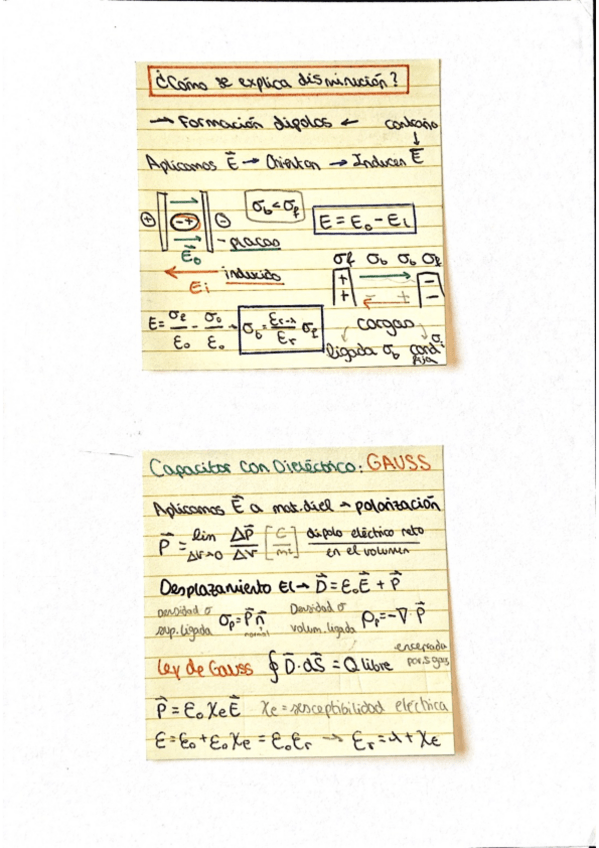 ¿Cómo se explica disminución?
→ Formación dipolos ← contrario
↓
Aplicamos E⃗ → Orientan → Inducen E⃗
+ - + -
σb < σf
E = E₀ - Ei
E⃗₀ - placas
Ei inducido
σf σb σb σf
+ - + -
+ -
E = σf/ε₀ - σb/ε₀ → σb = (εr-1)/εr σf
cargas
ligada σb cond σ
fija
Capacitor con Dieléctrico: GAUSS
Aplicamos E⃗ a mat. diel → polarización
P⃗ = lim ΔV→0 ΔP⃗/ΔV [C/m²] dipolo eléctrico neto
en el volumen
Desplazamiento El → D⃗ = ε₀E⃗ + P⃗
Densidad σ sup. ligada σp = P⃗ n⃗ normal Densidad σ volum. ligada ρp = -∇·P⃗
Ley de Gauss ∮ D⃗·dS⃗ = Q libre encerrada por s gaus
P⃗ = ε₀ χe E⃗ χe = susceptibilidad eléctrica
ε = ε₀ + ε₀ χe = ε₀ εr → εr = 1 + χe